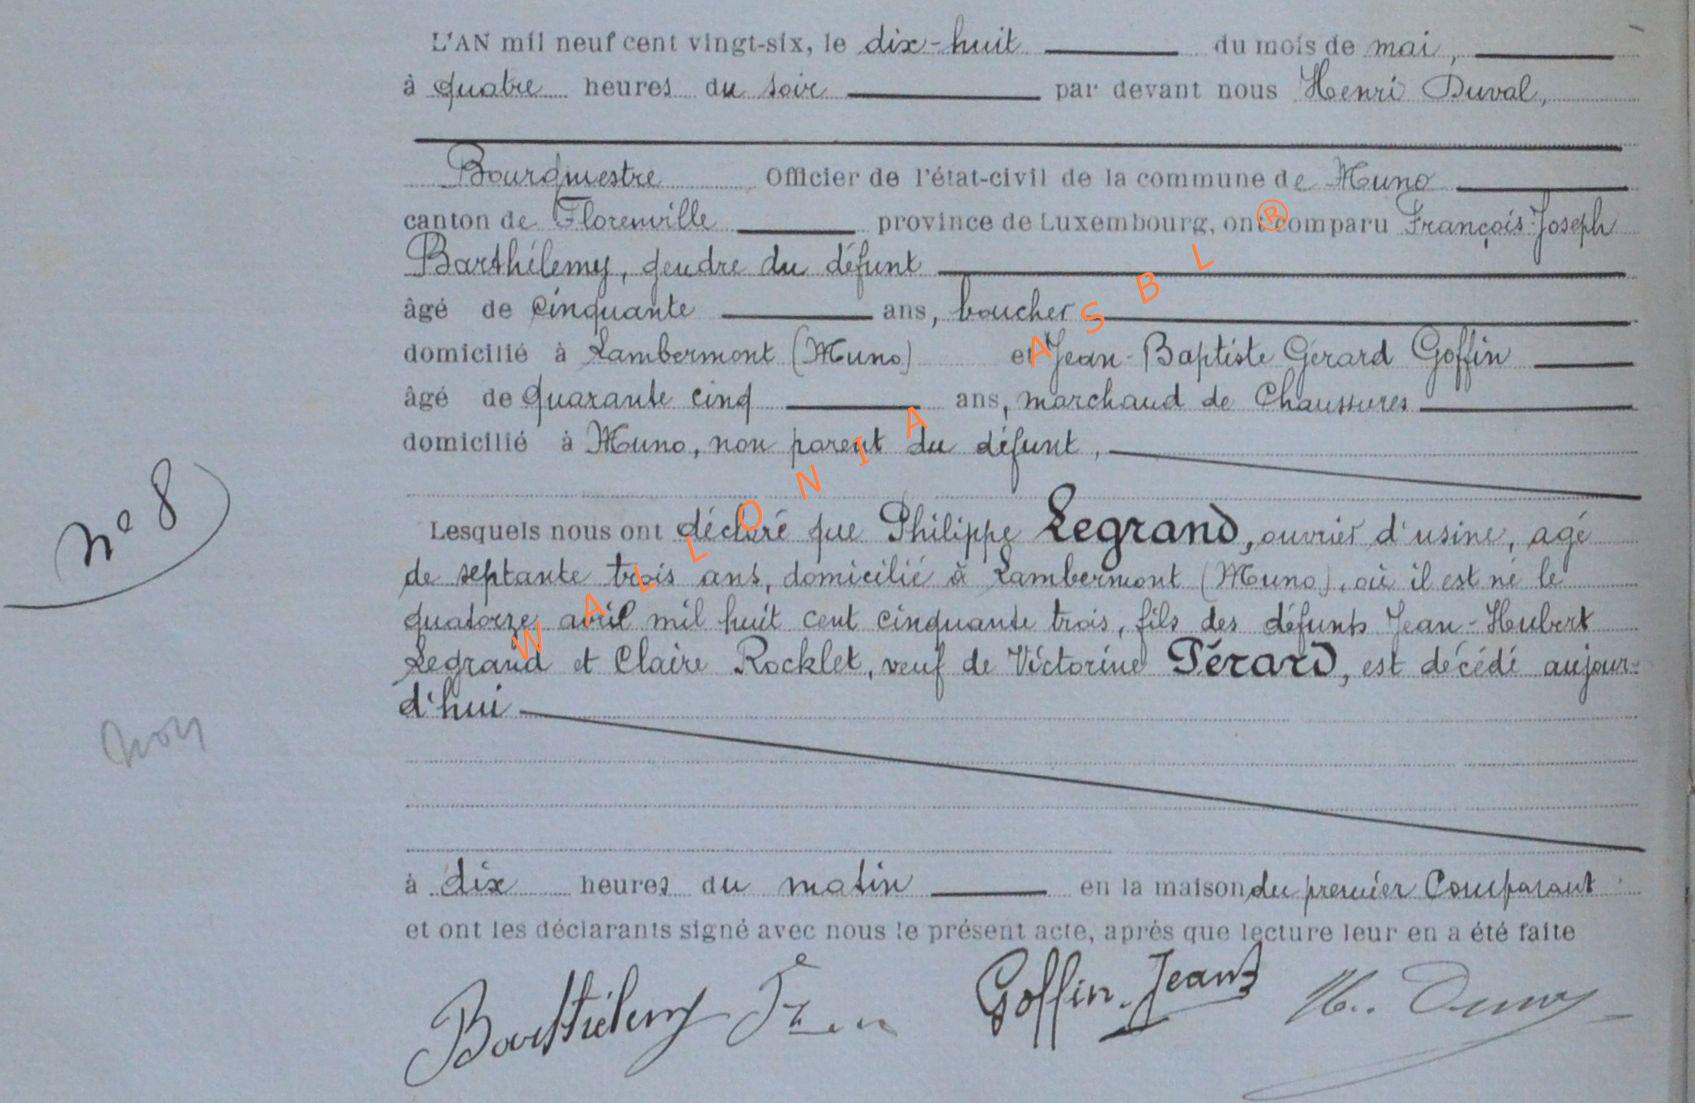 L'AN mil neuf cent vingt-six, le dix-huit du mois de mai,
à quatre heures du soir par devant nous Henri Duval,
Bourgmestre Officier de l'état-civil de la commune de Muno
canton de Florenville province de Luxembourg, ont comparu François-Joseph
Barthélemy, gendre du défunt
âgé de cinquante ans, boucher
domicilié à Lambermont (Muno) et Jean-Baptiste Gérard Goffin
âgé de quarante cinq ans, marchand de Chaussures
domicilié à Muno, non parent du défunt,
Lesquels nous ont déclaré que Philippe Legrand, ouvrier d'usine, agé
de septante trois ans, domicilié à Lambermont (Muno), où il est né le
quatorze avril mil huit cent cinquante trois, fils des défunts Jean-Hubert
Legrand et Claire Rocklet, veuf de Victorine Pérard, est décédé aujour-
d'hui
à dix heures du matin en la maison du premier Comparant
et ont les déclarants signé avec nous le présent acte, après que lecture leur en a été faite
Barthélemy Goffin-Jean H. Duval
N° 8
Non
WALLONIA ASBL ®